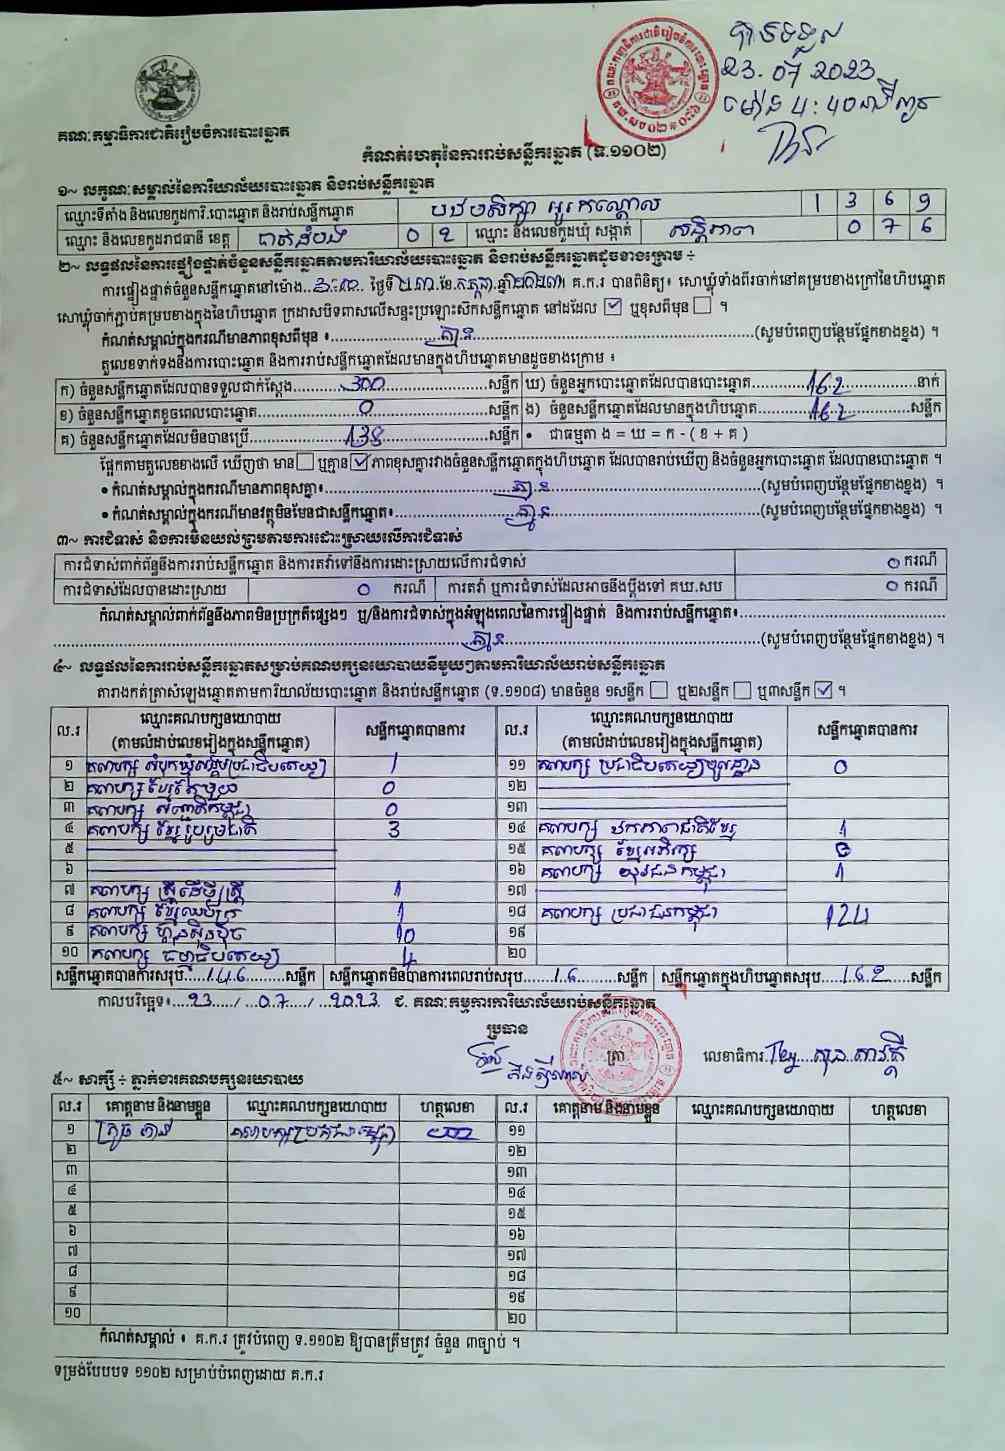 បានទទួល
23.07.2023
ម៉ោង 4:40 នាទី
គណៈកម្មាធិការជាតិរៀបចំការបោះឆ្នោត
កំណត់ហេតុនៃការរាប់សន្លឹកឆ្នោត (ទ.១១០២)
១~ លក្ខណៈសម្គាល់នៃការិយាល័យបោះឆ្នោត និងរាប់សន្លឹកឆ្នោត
ឈ្មោះទីតាំង និងលេខកូដការិ.បោះឆ្នោត និងរាប់សន្លឹកឆ្នោត បឋមសិក្សា អូរកណ្ដោល 1 3 6 9
ឈ្មោះ និងលេខកូដរាជធានី ខេត្ត បាត់ដំបង 0 2 ឈ្មោះ និងលេខកូដឃុំ សង្កាត់ សន្តិភាព 0 7 6
២~ លទ្ធផលនៃការផ្ទៀងផ្ទាត់ចំនួនសន្លឹកឆ្នោតតាមការិយាល័យបោះឆ្នោត និងរាប់សន្លឹកឆ្នោតដូចខាងក្រោម ÷
ការផ្ទៀងផ្ទាត់ចំនួនសន្លឹកឆ្នោតនៅម៉ោង..៣:០០. ថ្ងៃទី២៣.ខែ.កក្កដា.ឆ្នាំ២០២៣។ គ.ក.រ បានពិនិត្យ៖ សោឃ្លុំទាំងពីរចាក់នៅគម្របខាងក្រៅនៃហិបឆ្នោត
សោឃ្លុំចាក់ភ្ជាប់គម្របខាងក្នុងនៃហិបឆ្នោត ក្រដាសបិទពាសលើសន្ទះប្រឡោះស៊កសន្លឹកឆ្នោត នៅដដែល ☑ ឬខុសពីមុន ☐ ។
កំណត់សម្គាល់ក្នុងករណីមានភាពខុសពីមុន ៖ គ្មាន (សូមបំពេញបន្ថែមផ្នែកខាងខ្នង) ។
តួលេខទាក់ទងនឹងការបោះឆ្នោត និងការរាប់សន្លឹកឆ្នោតដែលមានក្នុងហិបឆ្នោតមានដូចខាងក្រោម ៖
ក) ចំនួនសន្លឹកឆ្នោតដែលបានទទួលជាក់ស្តែង 300 សន្លឹក ឃ) ចំនួនអ្នកបោះឆ្នោតដែលបានបោះឆ្នោត 162 នាក់
ខ) ចំនួនសន្លឹកឆ្នោតខូចពេលបោះឆ្នោត 0 សន្លឹក ង) ចំនួនសន្លឹកឆ្នោតដែលមានក្នុងហិបឆ្នោត 162 សន្លឹក
គ) ចំនួនសន្លឹកឆ្នោតដែលមិនបានប្រើ 138 សន្លឹក • ជាធម្មតា ង = ឃ = ក - ( ខ + គ )
ផ្អែកតាមតួលេខខាងលើ ឃើញថា មាន ☐ ឬគ្មាន ☑ ភាពខុសគ្នារវាងចំនួនសន្លឹកឆ្នោតក្នុងហិបឆ្នោត ដែលបានរាប់ឃើញ និងចំនួនអ្នកបោះឆ្នោត ដែលបានបោះឆ្នោត ។
• កំណត់សម្គាល់ក្នុងករណីមានភាពខុសគ្នា៖ គ្មាន (សូមបំពេញបន្ថែមផ្នែកខាងខ្នង) ។
• កំណត់សម្គាល់ក្នុងករណីមានវត្ថុមិនមែនជាសន្លឹកឆ្នោត៖ គ្មាន (សូមបំពេញបន្ថែមផ្នែកខាងខ្នង) ។
៣~ ការជំទាស់ និងការមិនយល់ព្រមតាមការដោះស្រាយលើការជំទាស់
ការជំទាស់ពាក់ព័ន្ធនឹងការរាប់សន្លឹកឆ្នោត និងការតវ៉ាទៅនឹងការដោះស្រាយលើការជំទាស់ 0 ករណី
ការជំទាស់ដែលបានដោះស្រាយ 0 ករណី ការតវ៉ា ឬការជំទាស់ដែលអាចនឹងប្តឹងទៅ គឃ.សប 0 ករណី
កំណត់សម្គាល់ពាក់ព័ន្ធនឹងភាពមិនប្រក្រតីផ្សេងៗ ឬ/និងការជំទាស់ក្នុងអំឡុងពេលនៃការផ្ទៀងផ្ទាត់ និងការរាប់សន្លឹកឆ្នោត៖
គ្មាន (សូមបំពេញបន្ថែមផ្នែកខាងខ្នង) ។
៤~ លទ្ធផលនៃការរាប់សន្លឹកឆ្នោតសម្រាប់គណបក្សនយោបាយនីមួយៗតាមការិយាល័យរាប់សន្លឹកឆ្នោត
តារាងកត់ត្រាសំឡេងឆ្នោតតាមការិយាល័យបោះឆ្នោត និងរាប់សន្លឹកឆ្នោត (ទ.១១០៨) មានចំនួន ១សន្លឹក ☐ ឬ២សន្លឹក ☐ ឬ៣សន្លឹក ☑ ។
ល.រ ឈ្មោះគណបក្សនយោបាយ (តាមលំដាប់លេខរៀងក្នុងសន្លឹកឆ្នោត) សន្លឹកឆ្នោតបានការ ល.រ ឈ្មោះគណបក្សនយោបាយ (តាមលំដាប់លេខរៀងក្នុងសន្លឹកឆ្នោត) សន្លឹកឆ្នោតបានការ
១ គណបក្ស សំបុកឃ្មុំសង្គមប្រជាធិបតេយ្យ 1 ១១ គណបក្ស ប្រជាធិបតេយ្យមូលដ្ឋាន 0
២ គណបក្ស ខ្មែរតែមួយ 0 ១២
៣ គណបក្ស សញ្ជាតិកម្ពុជា 0 ១៣
៤ គណបក្ស ខ្មែររួបរួមជាតិ 3 ១៤ គណបក្ស ឯកភាពជាតិខ្មែរ 1
៥ ១៥ គណបក្ស ខ្មែរអភិរក្ស 0
៦ ១៦ គណបក្ស យុវជនកម្ពុជា 1
៧ គណបក្ស ស្ត្រីដើម្បីស្ត្រី 1 ១៧
៨ គណបក្ស ខ្មែរឈប់ក្រ 1 ១៨ គណបក្ស ប្រជាជនកម្ពុជា 124
៩ គណបក្ស ហ្វ៊ុនស៊ិនប៉ិច 10 ១៩
១០ គណបក្ស ធម្មាធិបតេយ្យ 4 ២០
សន្លឹកឆ្នោតបានការសរុប 146 សន្លឹក សន្លឹកឆ្នោតមិនបានការពេលរាប់សរុប 16 សន្លឹក សន្លឹកឆ្នោតក្នុងហិបឆ្នោតសរុប 162 សន្លឹក
កាលបរិច្ឆេទ៖ 23 / 07 / 2023 ជ. គណៈកម្មការការិយាល័យរាប់សន្លឹកឆ្នោត
ប្រធាន
ត្រា
លេខាធិការ
៥~ សាក្សី ÷ ភ្នាក់ងារគណបក្សនយោបាយ
ល.រ គោត្តនាម និងនាមខ្លួន ឈ្មោះគណបក្សនយោបាយ ហត្ថលេខា ល.រ គោត្តនាម និងនាមខ្លួន ឈ្មោះគណបក្សនយោបាយ ហត្ថលេខា
១ គណបក្សប្រជាជនកម្ពុជា ១១
២ ១២
៣ ១៣
៤ ១៤
៥ ១៥
៦ ១៦
៧ ១៧
៨ ១៨
៩ ១៩
១០ ២០
កំណត់សម្គាល់ ៖ គ.ក.រ ត្រូវបំពេញ ទ.១១០២ ឱ្យបានត្រឹមត្រូវ ចំនួន ៣ច្បាប់ ។
ទម្រង់បែបបទ ១១០២ សម្រាប់បំពេញដោយ គ.ក.រ